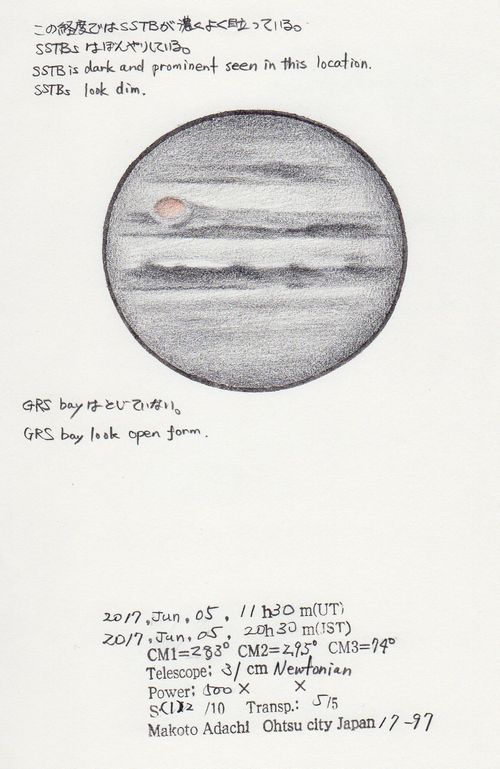 この経度ではSSTBが濃くよく目立っている。
SSTBsはぼんやりしている。
SSTB is dark and prominent seen in this location.
SSTBs look dim.
GRS bayはとじていない。
GRS bay look open form.
2017, Jun, 05, 11h30m(UT)
2017, Jun, 05, 20h30m(JST)
CM1=283° CM2=295° CM3=74°
Telescope: 31 cm Newtonian
Power: 500× ×
/10 Transp.: 5/5
Makoto Adachi Ohtsu city Japan 17-97